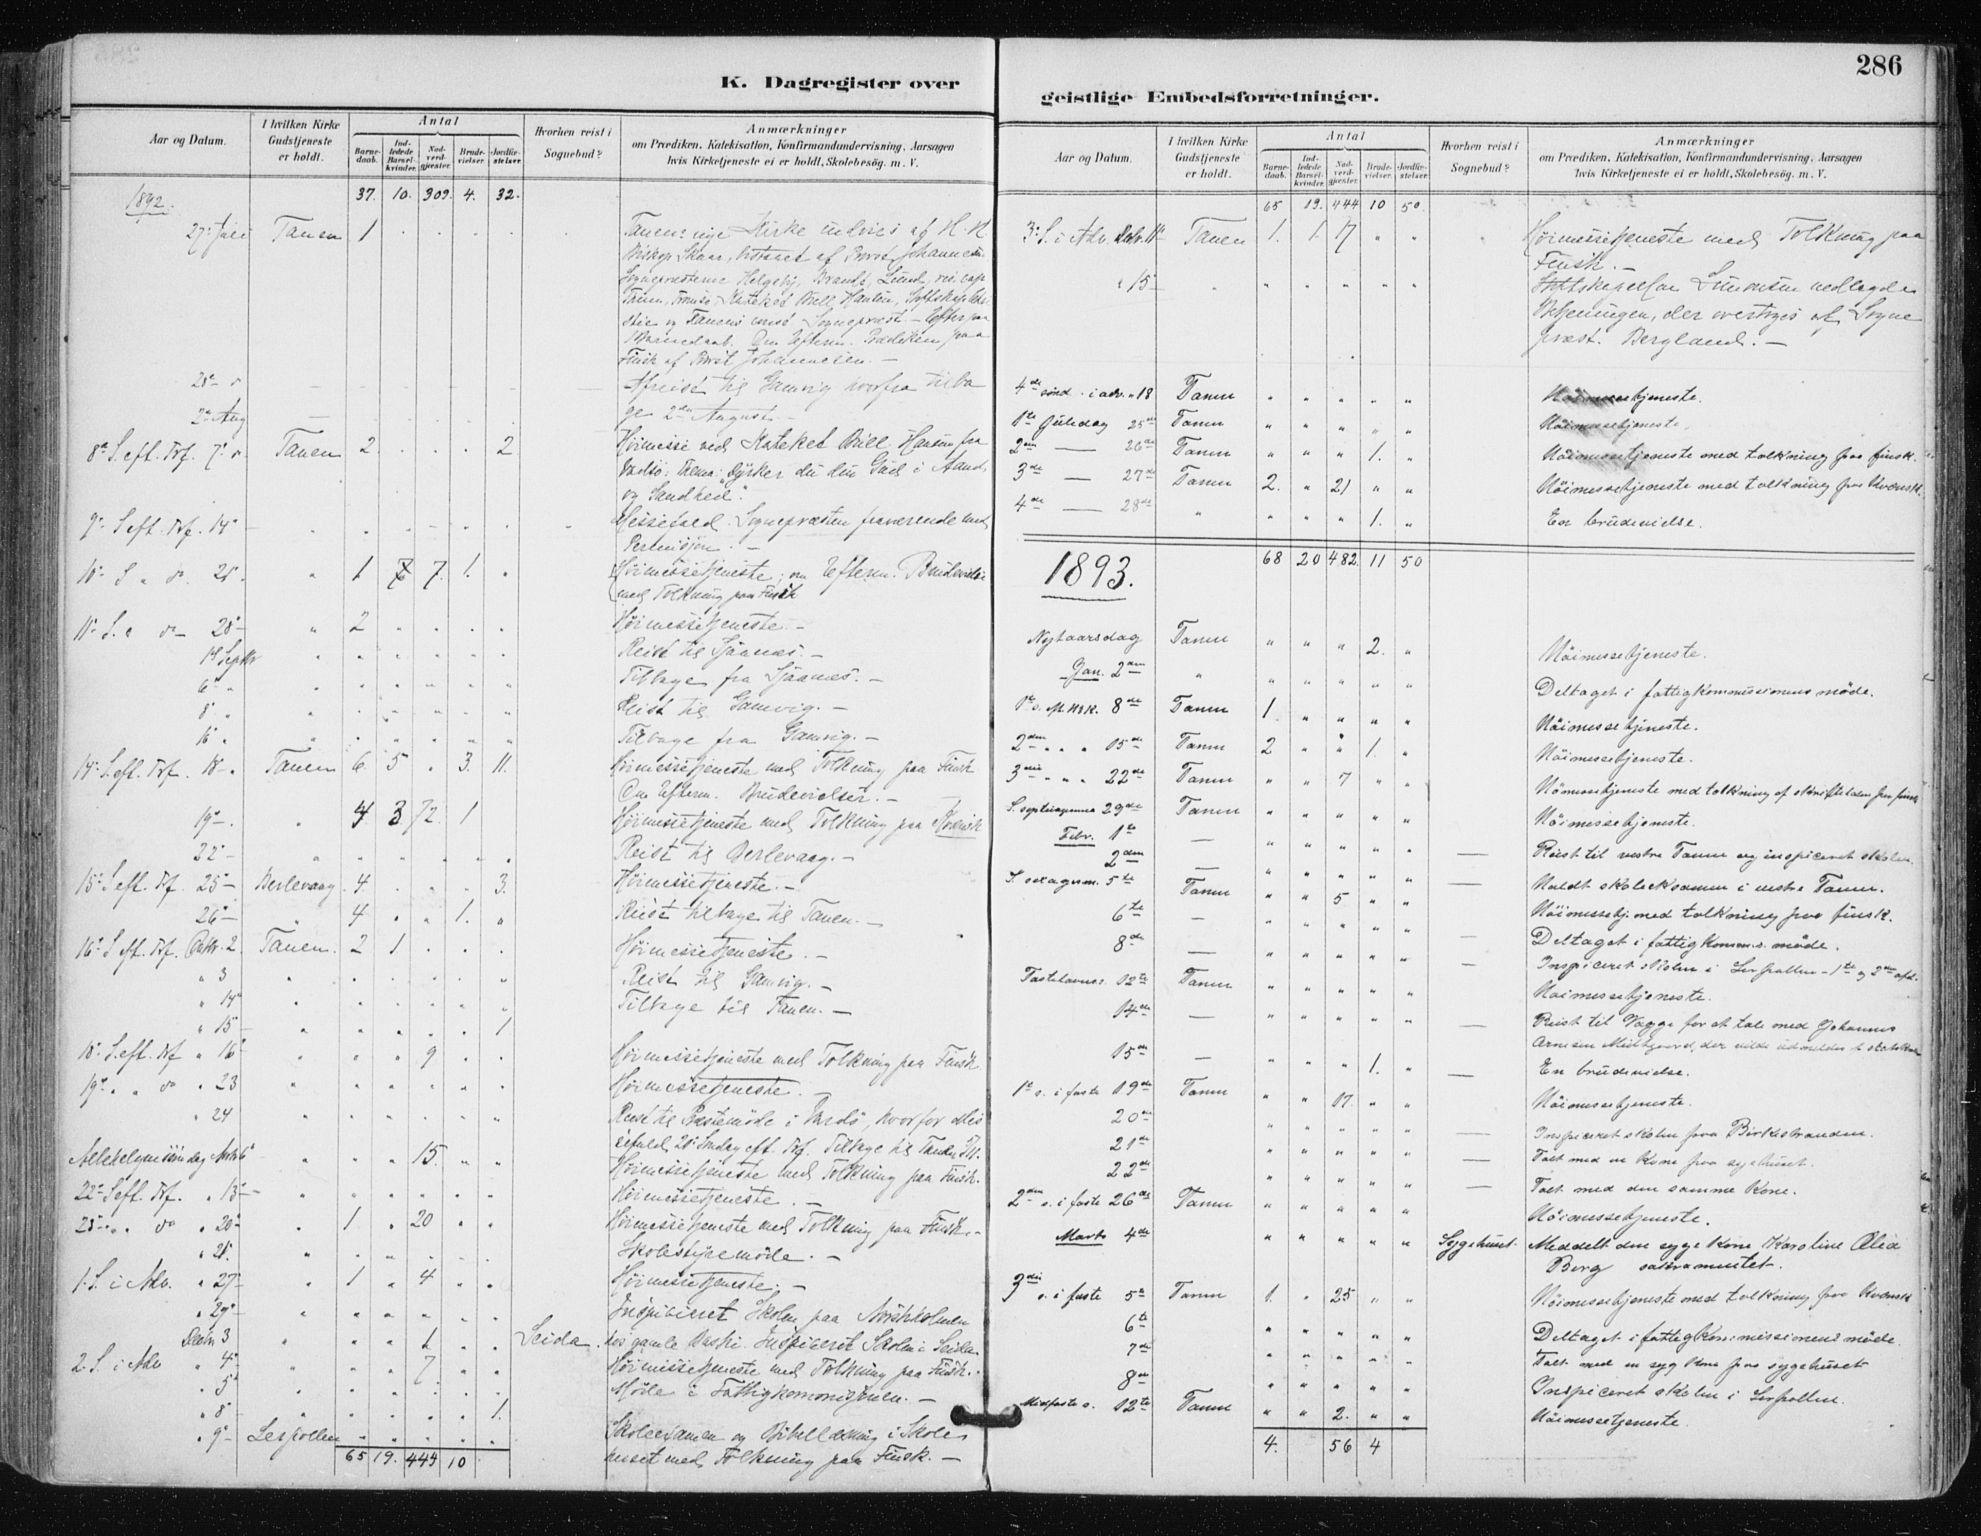 286
K. Dagregister over
geistlige Embedsforretninger.
Aar og Datum.
I hvilken Kirke Gudstjeneste er holdt.
Antal
Barnedaab.
Indledede Barselkvinder.
Nadverdgjester.
Brudevielser.
Jordfæstelser.
Hvorhen reist i Sognebud?
Anmærkninger
om Prædiken, Katekisation, Konfirmandundervisning, Aarsagen
hvis Kirketjeneste ei er holdt, Skolebesøg. m. V.
1892. 37. 10. 309. 4. 32.
27 Juli Tanen 1 Tanens nye Kirke indvies af H. H.
Biskop Skaar, assisteret af Provst Johannesen
Sognepræsterne Helgeby, Brandt, Lund,
Tromsø, Kateket Bull Hansen,
og Tanens Sognepræst
Barnedaab. Om Efterm. Prædiken paa
Finsk af Provst Johannesen. —
28 Afreist til Gamvig hvorfra tilba
2 Aug ge 2den August. —
8 S. eft. Trf. 7 Tanen 2 2 Høimesse ved Kateket Bull Hansen fra
Vadsø: Thema: "Dyrker du din Gud i Aand
og Sandhed".
9 S. eft. Trf. 14 Messefald. Sognepræsten fraværende med
Permisjon. —
10 S " do 21 1 7 1. Høimessetjeneste; om Efterm. Brudevielse
med Tolkning paa Finsk
11 S. " do 28 2 Høimessetjeneste. —
1 Septbr Reist til Sjaanæs. —
6 Tilbage fra Sjaanæs. —
8 Reist til Gamvig. —
16 Tilbage fra Gamvig. —
14 S. eft. Trf. 18 Tanen 6 5 3. 11. Høimessetjeneste med Tolkning paa Finsk
Om Efterm. Brudevielser. —
19 4 3 72. 1 Høimessetjeneste med Tolkning paa Kvænsk
22 Reist til Berlevaag. —
15 S. eft. Trf. 25 Berlevaag 4. 3. Høimessetjeneste. —
26 4 1. Reist tilbage til Tanen. —
16 S. eft. Trf. Oktbr. 2. Tanen. 2 1 Høimessetjeneste. —
" 3 Reist til Gamvig. —
" 14 Tilbage til Tanen. —
" 15 1
18 S. eft. Trf " 16 9 Høimessetjeneste med Tolkning paa Finsk.
19 " " do " 23 Høimessetjeneste. —
" 24 Reist til Præstemøde i Vardø, hvorfor Mes
sefald 20 Søndag eft. Trf. Tilbage til Tanen
Allehelgenssøndag Novbr 6 15. Høimessetjeneste med Tolkning paa Finsk.
22 S. eft. Trf. " 13 Høimessetjeneste. —
23 " " do " 20 1 20 Høimessetjeneste med Tolkning paa Finsk. -
" 21. Skolestyremøde. —
1. S. i Adv. " 27 1 4 Høimessetjeneste. —
" 29 Inspiceret Skolen paa
Decbr 3 1 Seida Inspiceret Skolen i Seida.
2. S. i Adv " 4 7 Høimessetjeneste med Tolkning paa Finsk.
" 5 Møde i Fattigkommisjonen. —
" 8 1.
" 9 Lerpollen Skoleexamen og Bibellæsning i Skole
huset med Tolkning paa Finsk. —
65 19. 444 10
Aar og Datum.
I hvilken Kirke Gudstjeneste er holdt.
Antal
Barnedaab.
Indledede Barselkvinder.
Nadverdgjester.
Brudevielser.
Jordfæstelser.
Hvorhen reist i Sognebud?
Anmærkninger
om Prædiken, Katekisation, Konfirmandundervisning, Aarsagen
hvis Kirketjeneste ei er holdt, Skolebesøg. m. V.
65 19. 444 10 50.
3 S. i Adv. Decbr. 11 Tanen 1. 1 17 " " Høimessetjeneste med Tolkning paa
Finsk. —
" 15 nedlagde
Betjeningen, der overtoges af Sogne
præst. Bergland. —
4de sønd. i adv. " 18 Tanen Høimessetjeneste.
1te Juledag 25de Tanen Høimessetjeneste.
2den — 26de Tanen 1. Høimessetjeneste med tolkning paa finsk.
3de — 27de Tanen 2. " 21 Høimessetjeneste med tolkning paa kvænsk.
4de — 28de 1. En brudevielse.
68 20 482. 11 50
1893.
Nytaarsdag Tanen 2. Høimessetjeneste.
Jan. 2den Deltaget i fattigkommissionens møde.
1te s. e. H.3.K. 8de Tanen 1 Høimessetjeneste.
2den " " " 15de Tanen 2 1. Høimessetjeneste.
3die " " " 22de Tanen 7 Høimessetjeneste med tolkning af skriftetalen paa finsk
S. septuagesima 29de Tanen Høimessetjeneste.
Febr. 1te — Reist til vestre Tanen og inspiceret skolen.
2den — Holdt skoleeksamen i vestre Tanen.
S. sexagesm. 5te Tanen 5 Høimessetj. med tolkning paa finsk.
6te — Deltaget i fattigkomm.s. møde.
8de — Inspiceret skolen i Lerpollen - 1te og 2den afd.
Fastelavns s. 12te Tanen Høimessetjeneste.
14de — Reist til Vagge for at tale med Johannes
Arnesen der vilde udmeldes af statskirken
15de — 1. En brudevielse.
1te s. i faste 19de Tanen 17. Høimessetjeneste.
20de — Inspiceret skolen paa Birkestranden.
21de — Talt med en kone paa sygehuset.
22de — Talt med den samme kone.
2den s. i faste 26de Tanen Høimessetjeneste.
Marts 4de Sygehuset. Meddelt den syge kone Karoline Olea
Berg sakramentet.
3die s. i faste 5te Tanen 1. 25 Høimessetjeneste med tolkning paa kvænsk
6te Deltaget i fattigkommissionens møde.
7de Talt med en syg kone paa sygehuset
8de Inspiceret skolen i Lerpollen.
Midfaste s. 12te Tanen 2. Høimessetjeneste.
4. 56 4